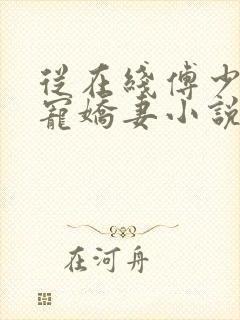 從在綫傅少
寵嬌妻小說
在河舟